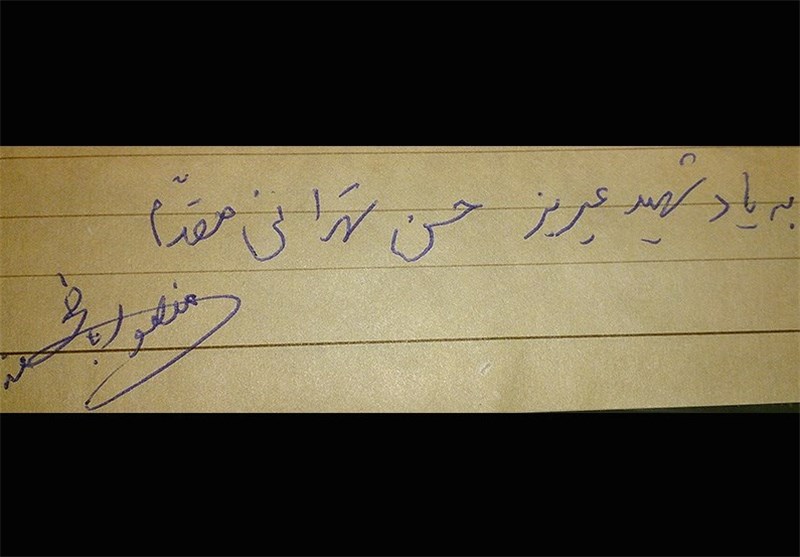 به یاد شهید عزیز حسن تهرانی مقدّم